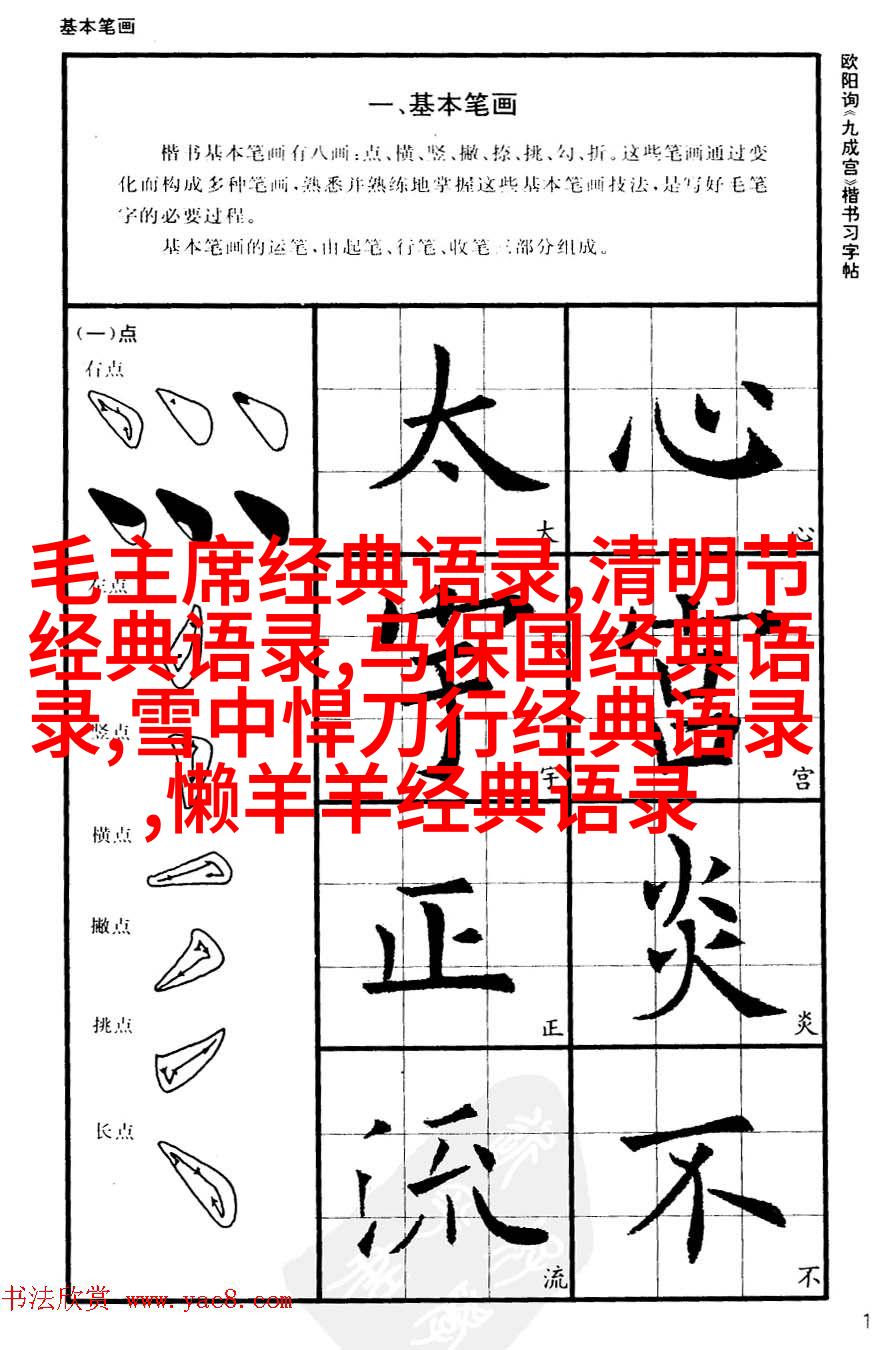 基本笔画
欧阳询《九成宫》楷书习字帖
一、基本笔画
楷书基本笔画有八画：点、横、竖、撇、捺、挑、勾、折。这些笔画通过变
化而构成多种笔画，熟悉并熟练地掌握这些基本笔画技法，是写好毛笔
字的必要过程。
基本笔画的运笔，由起笔、行笔、收笔三部分组成。
(一)点
右点
太
太
心
心
毛主席经典语录,清明节
经典语录,马保国经典语
录,雪中悍刀行经典语录
,懒羊羊经典语录
左点
竖点
宇
宇
宫
宫
横点
撇点
挑点
正
正
炎
炎
长点
流
流
不
不
书法欣赏 www.yac8.com
1